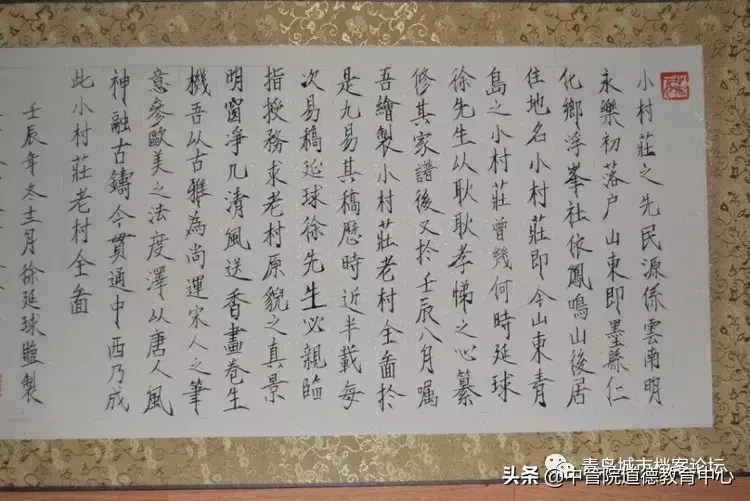 小村莊之先民源係雲南明
永樂初落户山東即墨縣仁
化鄉浮峯社依鳳鳴山後居
住地名小村莊即今山東青
島之小村莊曾幾何時延球
徐先生以耿耿孝悌之心纂
修其家譜後又於壬辰八月囑
吾繪製小村莊老村全啚於
是九易其稿歷時近半載每
次易稿延球徐先生必親臨
指授務求老村原貌之真景
明窗净几清風送香畫卷生
機吾以古雅為尚運宋人之筆
意參歐美之法度澤以唐人風
神融古鑄今貫通中西乃成
此小村莊老村全啚
壬辰年冬十二月徐延球監製
青岛城市档案论坛
头条 @中管院道德教育中心